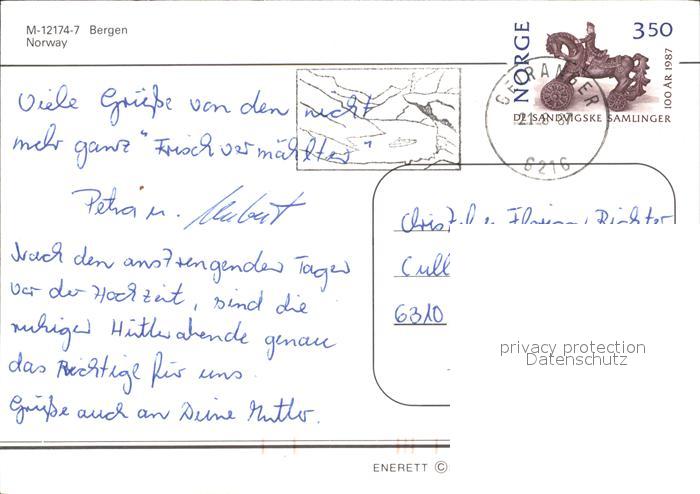 M-12174-7 Bergen
Norway
NORGE
350
100 ÅR 1987
DE SANDVIGSKE SAMLINGER
GEIRANGER
6216
Viele Grüße von den nicht
mehr ganz "Frischvermählten"
Petra u. Hubert
Nach den anstrengenden Tagen
vor der Hochzeit, sind die
ruhigen Hüttenabende genau
das Richtige für uns.
Grüße auch an Deine Mutter.
Florian Richter
6310
privacy protection
Datenschutz
ENERETT ©